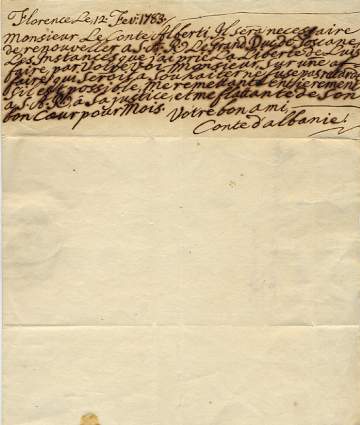 Florence Le, 12. Fev: 1783.
Monsieur Le Conte Alberti, Il sera necessaire
de renouveller a S. A. R. Le Grand Duc de Toscane
Les Instances que j'ai pris La Liberté de Lui
faire par devoir, Monsieur sur une af
faire qui seroit a souhaiter ne fuse pas
s'il est possible, me remettant entierement
a S. A. R. a Sa justice, et me flattant de Son
bon Cœur pour Mois. Votre bon ami,
Conte d'albanie.